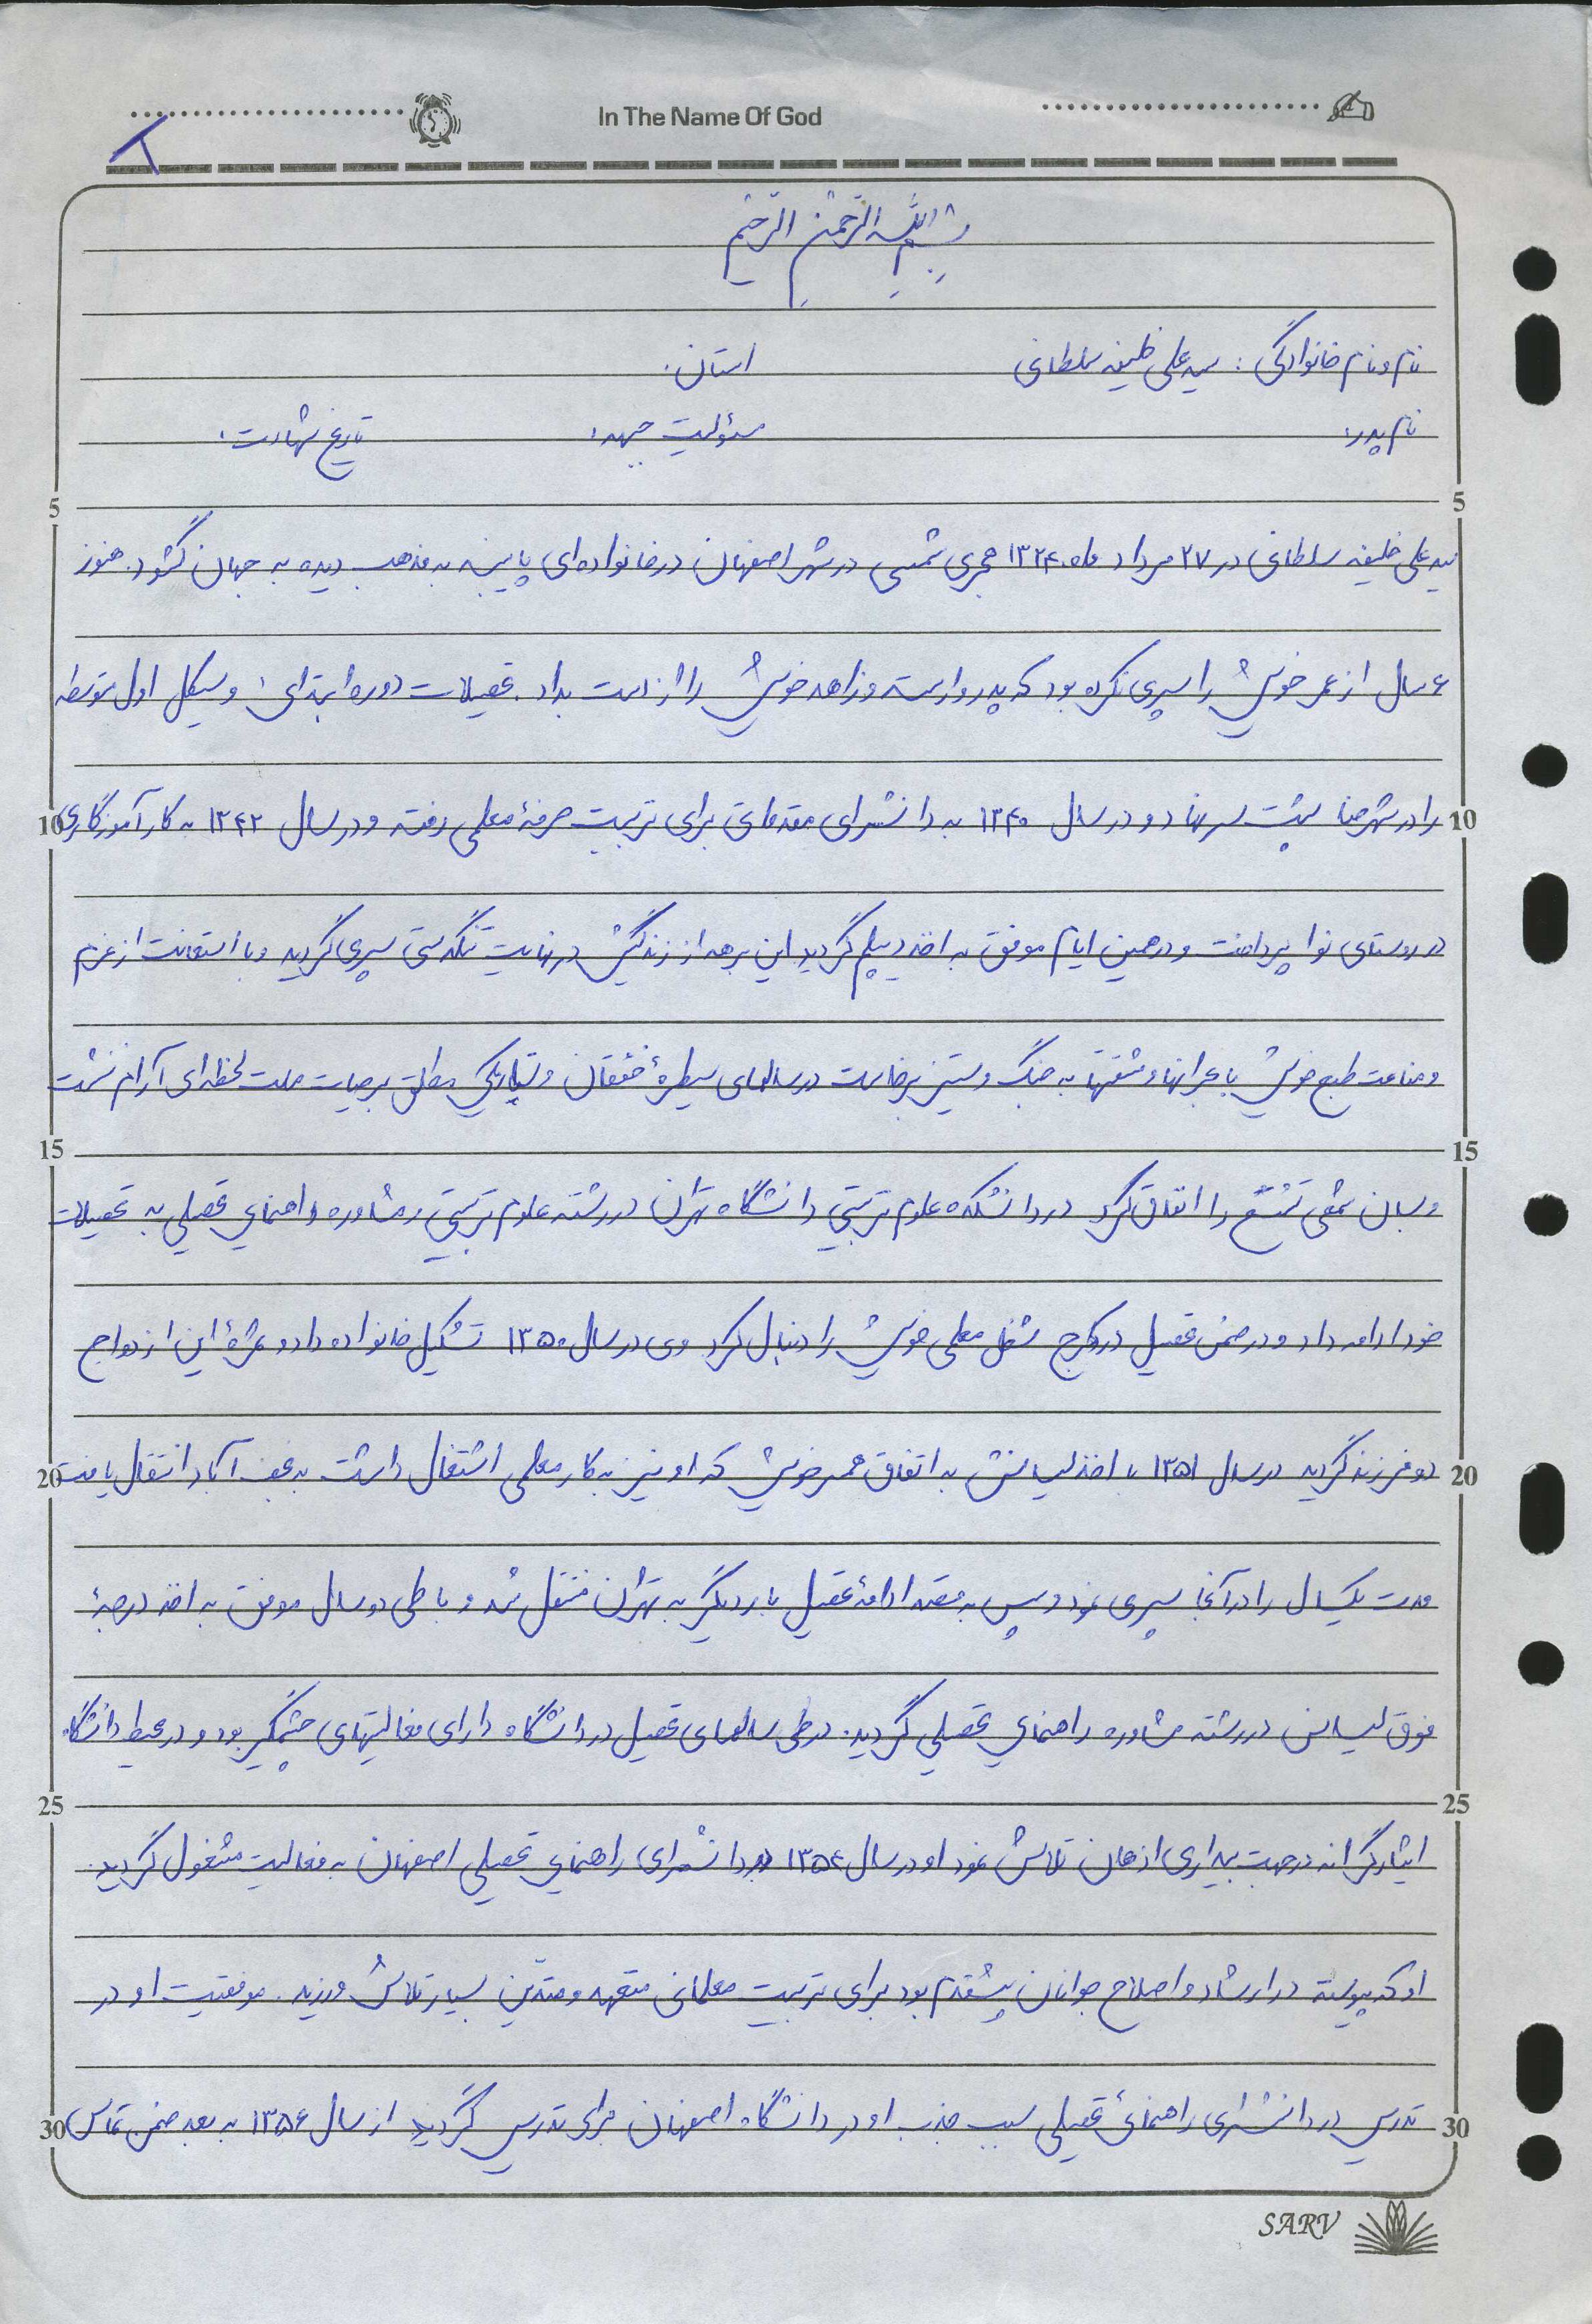 In The Name Of God
بسم الله الرحمن الرحیم
نام و نام خانوادگی : سید علی خلیفه سلطانی استان:
نام پدر: مسئولیت جبهه: تاریخ شهادت:
5 5
سید علی خلیفه سلطانی در ۲۷ مرداد ماه ۱۳۲۴ هجری شمسی در شهر اصفهان در خانواده‌ای پایبند به مذهب دیده به جهان گشود. هنوز
۶ سال از عمر خویش را سپری نکرده بود که پدر وارسته و زاهد خویش را از دست بداد. تحصیلات دوره ابتدای و سیکل اول متوسطه
10 را در شهرضا پشت سر نهاد و در سال ۱۳۴۰ به دانشسرای مقدماتی برای تربیت حرفهٔ معلمی رفته و در سال ۱۳۴۲ به کار آموزگاری 10
در روستای نوا پرداخت و در همین ایام موفق به اخذ دیپلم گردید این برهه از زندگیش در نهایت تنگدستی سپری گردید و با استعانت از عزم
و مناعت طبع خویش با بحرانها و مشقتها به جنگ و ستیز برخاست در سالهای سیطرهٔ خفقان و تاریکی مطلق بر حیات ملت لحظه‌ای آرام ننشست
15 15
و بسان شمعی تشعشع را انفاق کرد در دانشکده علوم تربیتی دانشگاه تهران در رشته علوم تربیتی و مشاوره و راهنمایی تحصیلی به تحصیلات
خود ادامه داد و در ضمن تحصیل در کرج شغل معلمی خویش را دنبال کرد وی در سال ۱۳۵۰ تشکیل خانواده داد و ثمرهٔ این ازدواج
20 دو فرزند گردید در سال ۱۳۵۱ با اخذ لیسانس به اتفاق همسر خویش که او نیز به کار معلمی اشتغال داشت به نجف آباد انتقال یافت 20
مدت یکسال را در آنجا سپری نمود و سپس به مقصد ادامهٔ تحصیل بار دیگر به تهران منتقل شد و با طی دو سال موفق به اخذ درجهٔ
فوق لیسانس در رشته مشاوره راهنمایی تحصیلی گردید. در طی سالهای تحصیل در دانشگاه دارای فعالیتهای چشمگیر بود و در محیط دانشگاه
25 25
ایثارگرانه در جهت بیداری اذهان تلاش نمود او در سال ۱۳۵۴ در دانشسرای راهنمایی تحصیلی اصفهان به فعالیت مشغول گردید.
او که پیوسته در ارشاد و اصلاح جوانان پیشقدم بود برای تربیت معلمانی متعهد و متدین بسیار تلاش ورزید. موفقیت او در
30 تدریس در دانشسرای راهنمائی تحصیلی سبب جذب او در دانشگاه اصفهان برای تدریس گردید از سال ۱۳۵۶ به بعد ضمن تماس 30
SARV